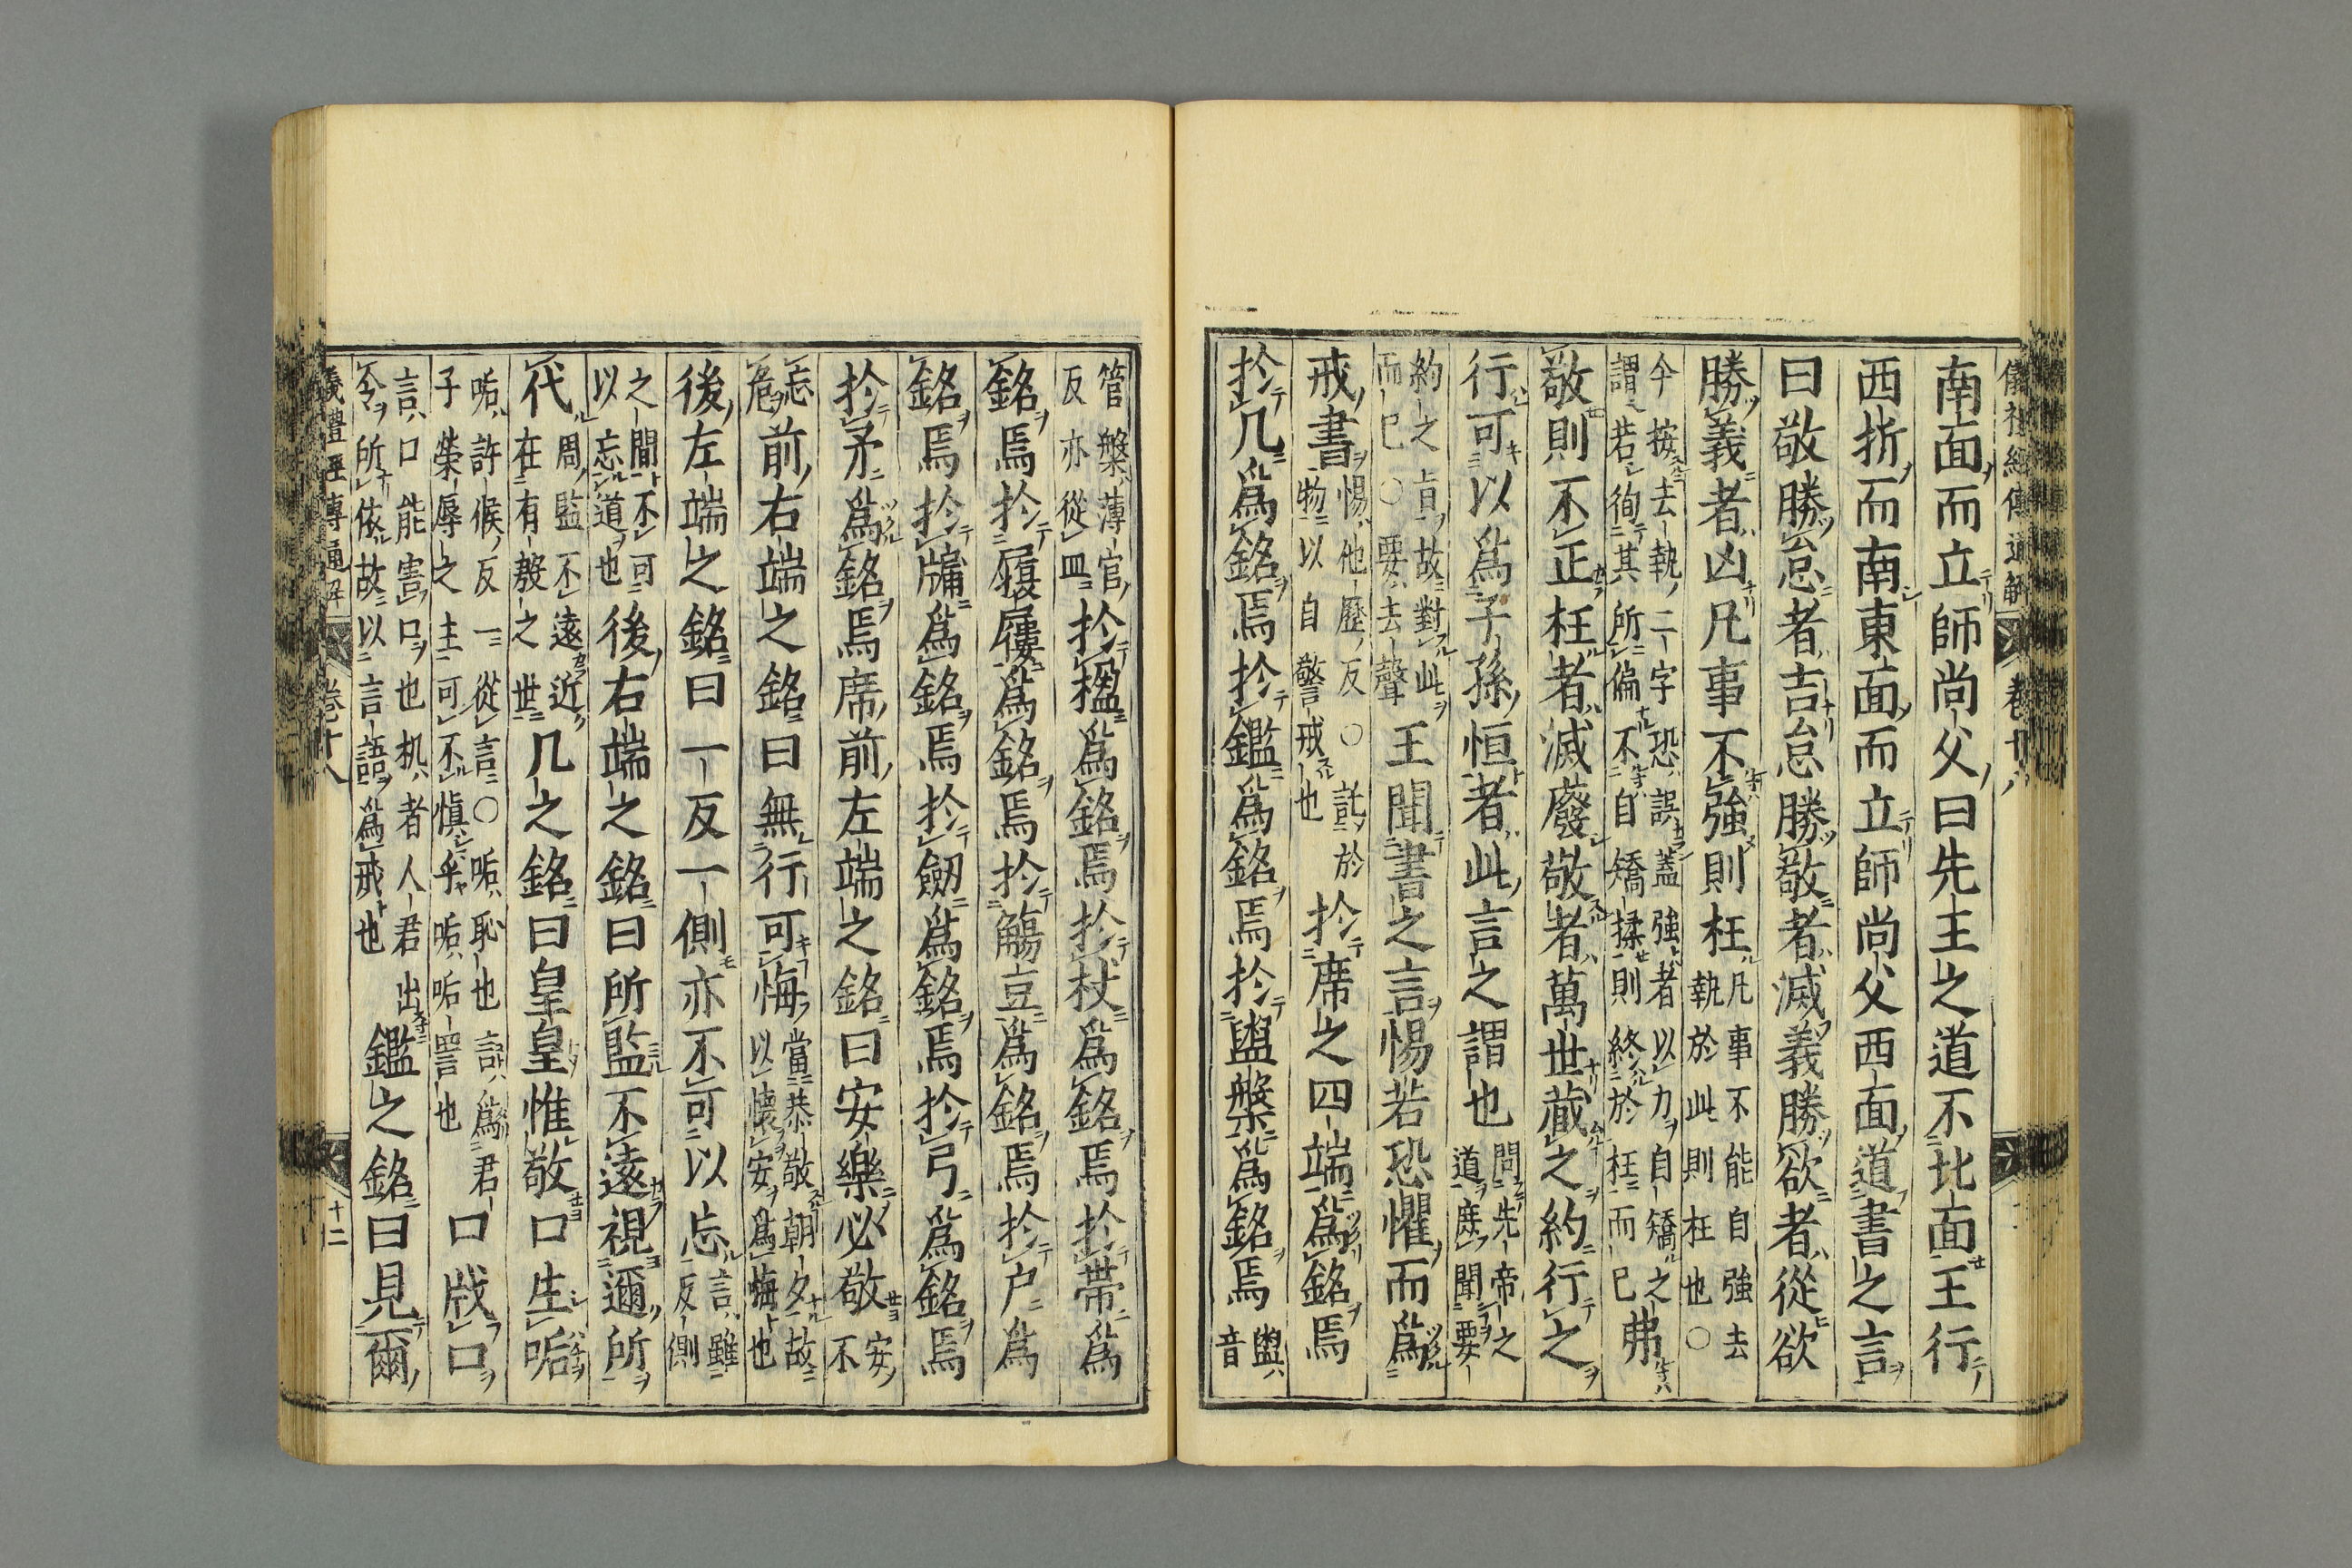 儀禮經傳通解 卷十八
南面而立師尚父曰先王之道不北面王行
西折而南東面而立師尚父西面道書之言
曰敬勝怠者吉怠勝敬者滅義勝欲者從欲
勝義者凶凡事不強則枉凡事不能自強去執於此則枉也〇
今按去執二字恐誤蓋強者以力自矯之謂若徇其所偏不自矯揉則終於枉而已弗
敬則不正枉者滅廢敬者萬世藏之約行之
行可以為子孫恒者此言之謂也問先帝之道庶聞要
約之㫖故對此而已〇要去聲王聞書之言惕若恐懼而為
戒書惕他歷反〇託於物以自警戒也於席之四端為銘焉
於几為銘焉於鑑為銘焉於盥槃為銘焉盥音
管槃薄官反亦從皿於楹為銘焉於杖為銘焉於帶為
銘焉於履屨為銘焉於觴豆為銘焉於户為
銘焉於牖為銘焉於劒為銘焉於弓為銘焉
於矛為銘焉席前左端之銘曰安樂必敬安不
忘危前右端之銘曰無行可悔當恭敬朝夕故以懐安為悔也
後左端之銘曰一反一側亦不可以忘言雖反側
之間不可以忘道也後右端之銘曰所監不遠視邇所
代周監不遠近在有殷之世几之銘曰皇皇惟敬口生㖃
㖃許候反一從言〇㖃恥也言為君子榮辱之主可不慎乎㖃㖃詈也口戕口
言口能害口也机者人君出令所依故以言語為戒也鑑之銘曰見爾
儀禮經傳通解 卷十八 十二